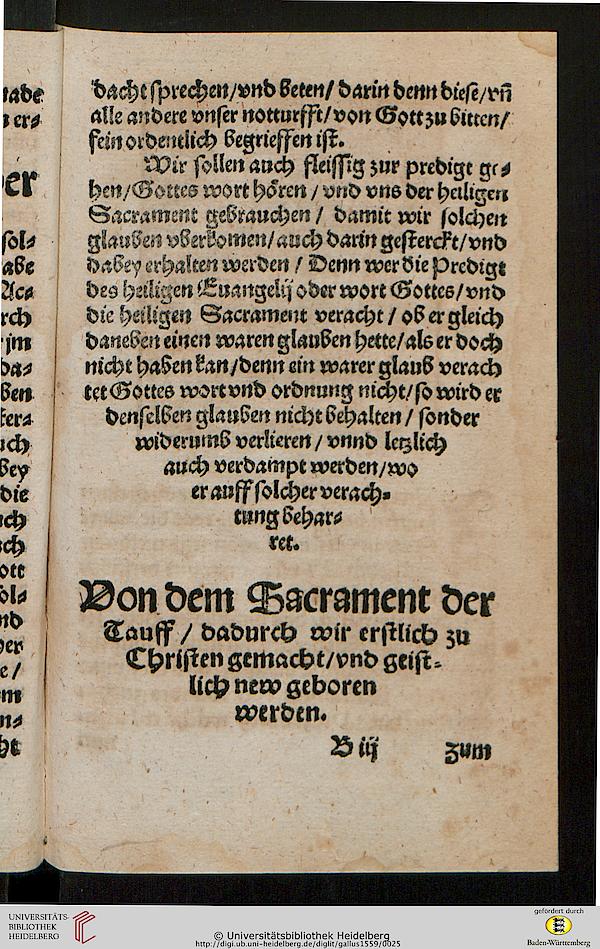 dacht sprechen/vnd beten/ darin denn diese/vñ
alle andere vnser notturfft/von Gott zu bitten/
fein ordentlich begrieffen ist.
Wir sollen auch fleissig zur predigt ge⸗
hen/Gottes wort hören / vnd vns der heiligen
Sacrament gebrauchen / damit wir solchen
glauben vberkomen/auch darin gesterckt/vnd
dabey erhalten werden / Denn wer die Predigt
des heiligen Euangelij oder wort Gottes/vnd
die heiligen Sacrament veracht / ob er gleich
daneben einen waren glauben hette/als er doch
nicht haben kan/denn ein warer glaub verach
tet Gottes wort vnd ordnung nicht/so wird er
denselben glauben nicht behalten / sonder
widerumb verlieren / vnnd letzlich
auch verdampt werden/wo
er auff solcher verach⸗
tung behar⸗
ret.
Von dem Sacrament der
Tauff / dadurch wir erstlich zu
Christen gemacht/vnd geist⸗
lich new geboren
werden.
B iij zum
nade
n er⸗
er
sol⸗
abe
Ac⸗
rch
jm
da⸗
ben
ker⸗
uch
bey
die
uch
sch
ott
sol⸗
nd
der
e /
m
n⸗
ht
UNIVERSITÄTS-
BIBLIOTHEK
HEIDELBERG
© Universitätsbibliothek Heidelberg
http://digi.ub.uni-heidelberg.de/diglit/gallus1559/0025
gefördert durch
Baden-Württemberg